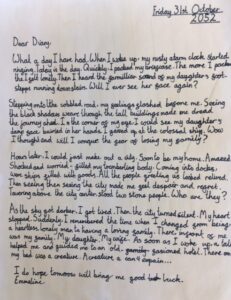 Friday 31st October
2052
Dear Diary,
What a day I have had. When I woke up my rusty alarm clock started
ringing. Today is the day. Quickly I packed my briefcase. The more I packed
the I felt lonely. Then I heard the familiar sound of my daughter's foot-
steps running downstairs. Will I ever see her face again?
Stepping onto the cobbled road, my feelings slashed before me. Seeing
the black shadows weave through the tall buildings made me dread
the journey ahead. In the corner of my eye I could see my daughter's
face buried in her hands. I gazed up at the colossal ship. How
I thought and will I conquer the fear of losing my family?
Hours later I could just make out a city. Soon to be my home. Amazed
Shocked and worried filled my body. Coming into docks,
were ships filled with goods. All the people greeting us looked relived.
Then seeing the city made me feel despair and regret.
Towering above the city center stood two stone people. Who are they?
As the sky got darker, I got tired. Then the city turned silent. My heart
stopped. Suddenly I remembered the time when I changed from being
a heartless, lonely man to having a loving family. There infront of me
was my family. My daughter. My wife. As soon as I woke up a lady
helped me and guided me to an old, fashioned hotel. There on
my bed was a creature. A creature a can't explain...
I do hope tomorrow will bring me good luck.
Emmaline